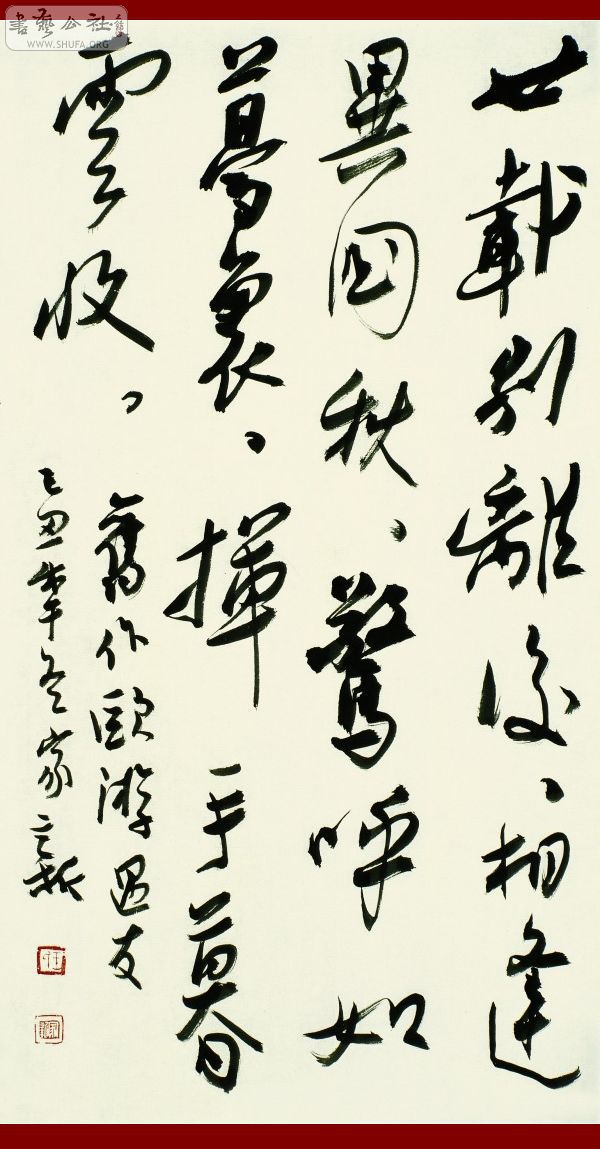 書藝公社
WWW.SHUFA.ORG
廿載別離後、相逢
異國秋、驚呼如
夢裏、揮手暮
雲收、
舊作歐游遇友
丑年冬家新